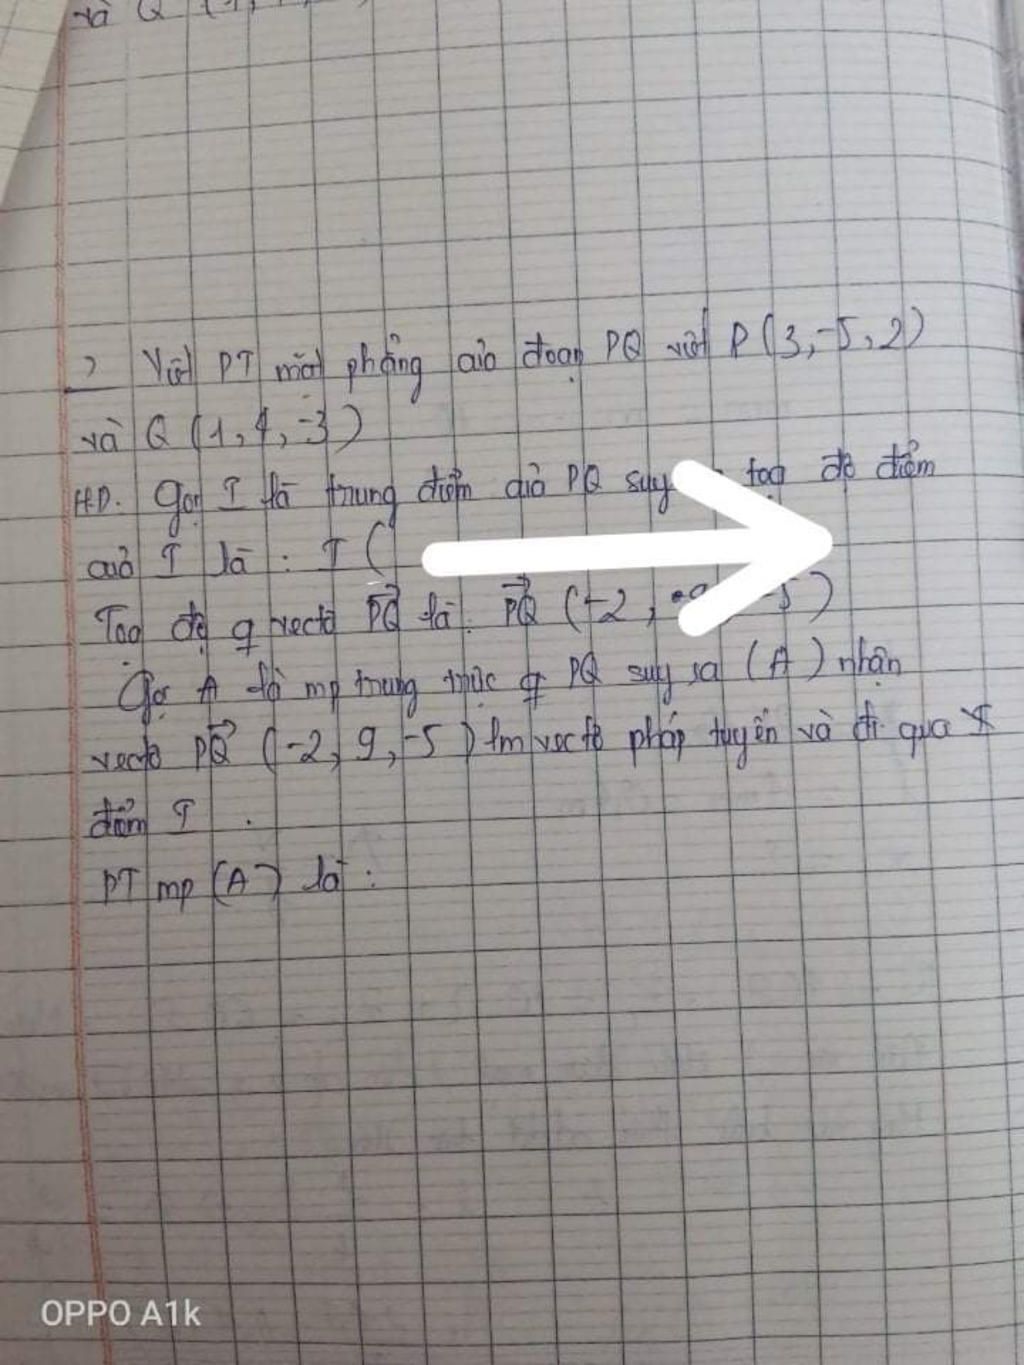 và Q (1,
) Viết PT mặt phẳng của đoạn PQ với P (3,-5,2)
và Q (1,4,-3)
HD. Gọi I là trung điểm của PQ suy tọa độ điểm
của I là : I (
Tọa độ q vectơ PQ là: PQ (-2,
Gọi A là mp trung trực PQ suy ra (A) nhận
vectơ PQ (-2, 9, -5) lm vectơ pháp tuyến và đi qua
điểm I .
PT mp (A) là :
OPPO A1k